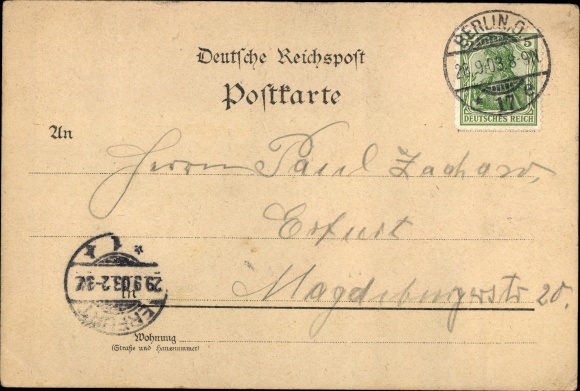 BERLIN, O.
28.9.03.8-9N.
* 17 g
5
DEUTSCHES REICH
Deutsche Reichspost
Postkarte
An
Herrn Paul Zachau,
Erfurt
Magdeburgerstr 20.
* 1 *
29.9.03.2-3N.
ERFURT
in
Wohnung
(Straße und Hausnummer)